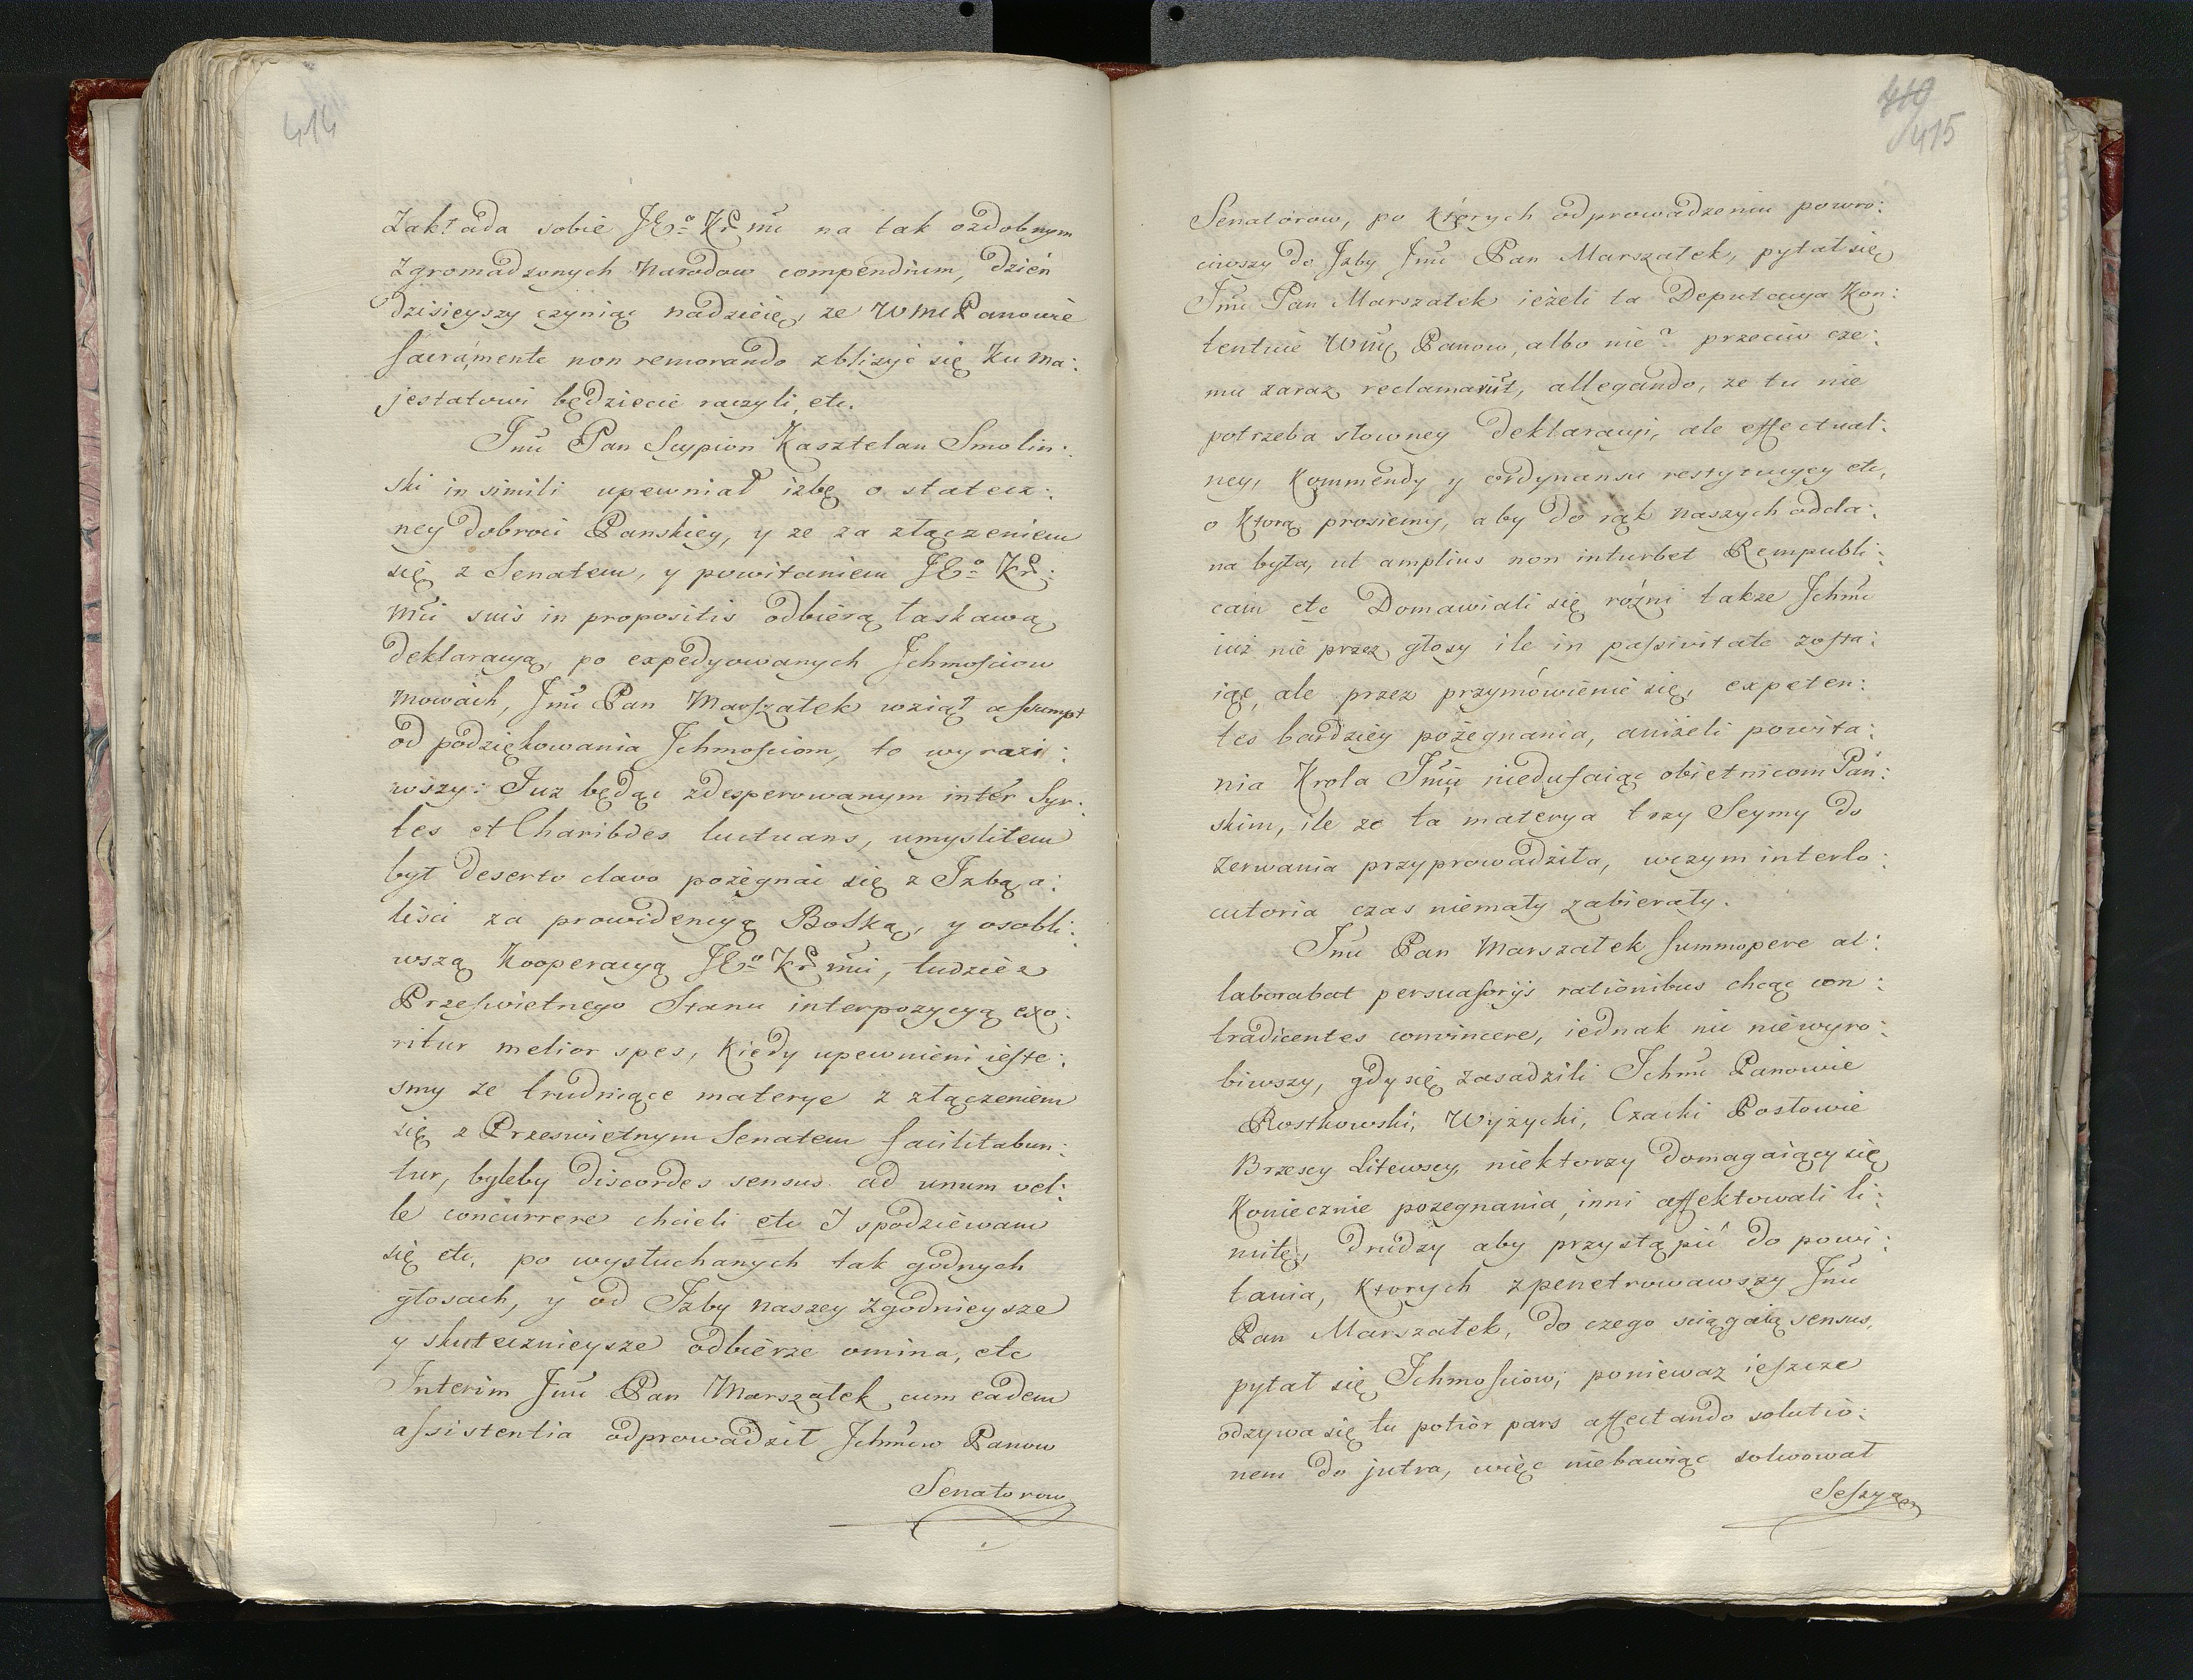 414
Zakłada sobie JEº Kr mć na tak ozdobnym
zgromadzonych Narodow compendium, dzień
dzisieyszy czyniąc nadzieię, ze WmćPanowie
sacramente non remorando zbliżyć się Ku Ma:
jestatowi będziecie raczyli, etc.
Jmć Pan Scypion Kasztelan Smolin:
ski in simili upewniał izbę o statecz:
ney dobroci Panskiey, y ze za złączeniem
się z Senatem, y powitaniem JEº Kr:
Mći suis in propositis odbiorą łaskawą
deklaracyą, po expedyowanych Jchmościow
Mowach, Jmć Pan Marszałek wziął assumpt
od podziękowania Jchmościom, to wyrazi:
wszy: Juz będąc zdesperowanym inter Syr:
tes et Charibdes luctuans, umyslitem
był deserto clavo pożegnać się z Izbą a:
liści za prowidencyą Boską, y osobli:
wszą Kooperacyą JEº Kr mći, tudzież
Prześwietnego Stanu interpozycyą exo:
ritur melior spes, kiedy upewnieni ieste:
smy ze trudniące materye z złączeniem
się z Przeswietnym Senatem facilitabun:
tur, byleby discordes sensus ad unum vel:
le concurrere chcieli etc I spodziewam
się etc, po wysłuchanych tak godnych
głosach, y od Izby naszey zgodnieysze
y skutecznieysze odbierze omina, etc
Interim Jmć Pan Marszałek cum eadem
assistentia odprowadził Jchmćiow Panow
Senatorow
419
415
Senatorow, po których odprowadzeniu powro:
ciwszy do Jzby Jmć Pan Marszałek, pytał się
Jmć Pan Marszałek ieżeli ta Deputacya Kon:
tentuie Wmć Panow, albo nie? przeciw cze:
mu zaraz reclamarunt, allegando, ze tu nie
potrzeba słowney deklaracyi, ale effectual:
ney, Kommendy y ordynansu restytucyey etc,
o Ktorą prosiemy, aby do rąk naszych odda:
na była, ut amplius non inturbet Rempubli:
cam etc Domawiali się różni także Jchmć
iuż nie przez głosy ile in passivitate zosta:
iąc, ale przez przymówienie się, expeten:
tes bardziey pożegnania, aniżeli powita:
nia Krola Jmći nieduſaiąc obietnicom Pań:
skim, ile ze ta materya trzy Seymy do
zerwania przyprowadziła, wczym interlo:
cutoria czas niemały zabierały.
Jmć Pan Marszałek summopere al:
laborabat persuasorijs rationibus chcąc con:
tradicentes convincere, iednak nic niewyro:
biwszy, gdy się zasadzili Ichmć Panowie
Rostkowski, Wyżycki, Czacki Posłowie
Brzescy Litewscy, niektorzy domagaiący się
Koniecznie pozegnania, inni affektowali li:
mitę, drudzy aby przystąpić do powi:
tania, Ktorych zpenetrowawszy Jmć
Pan Marszałek, do czego sciągaią sensus,
pytał się Ichmościow, poniewaz ieszcze
odzywa się tu potior pars affectando solutio:
nem do jutra, więc niebawiąc solwował
Seszyą